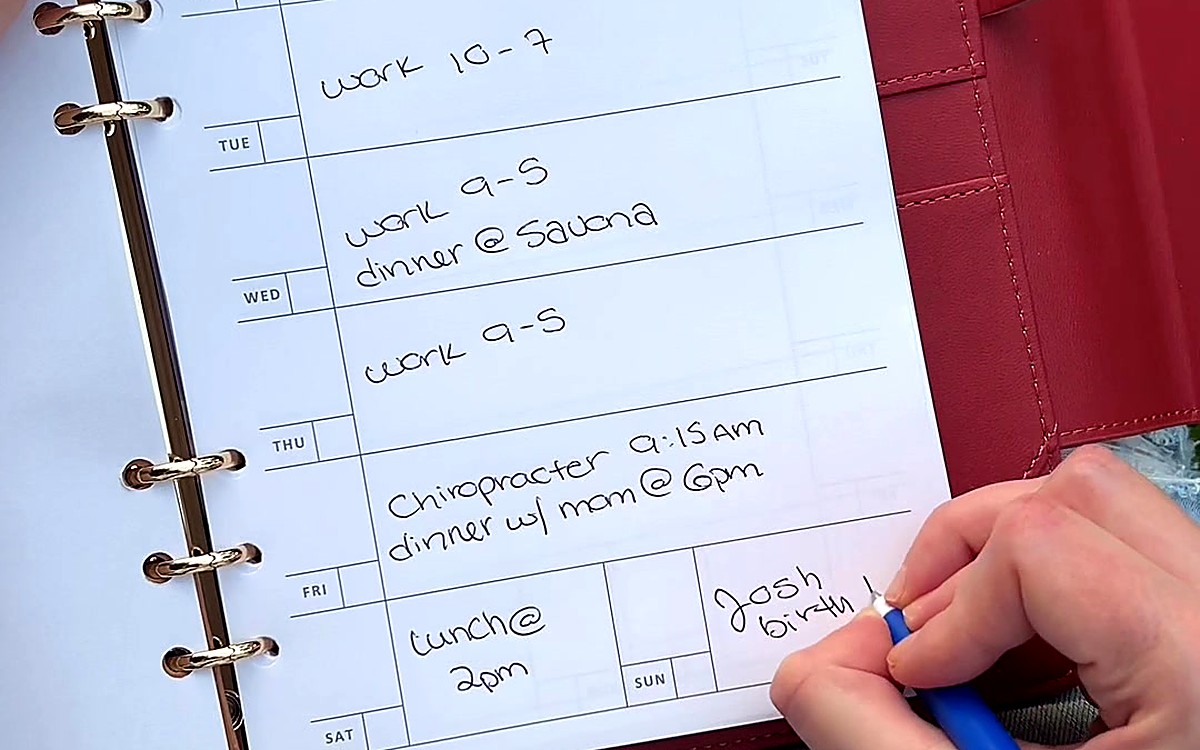 work 10-7
TUE
work 9-5
dinner @ Savona
WED
work 9-5
THU
Chiropracter 9:15AM
dinner w/ mom @ 6pm
FRI
Lunch@
2pm
SAT
Josh
birth
SUN